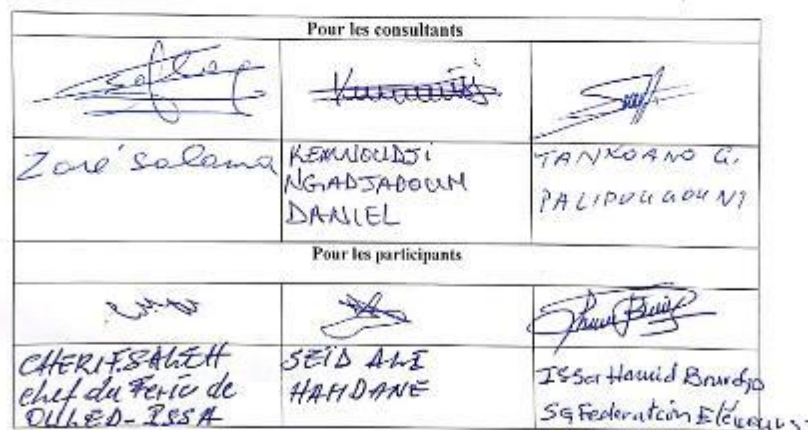 Pour les consultants
Zoré Salama
KEMNOUDJi
NGADJADOUM
DANIEL
TANKOANO G.
PALIPOUGOUNI
Pour les participants
CHERIF.SALEH
chef du Feric de
OULED-ISSA
SEÏD ALI
HAMDANE
Issa Hamid
SG Federation